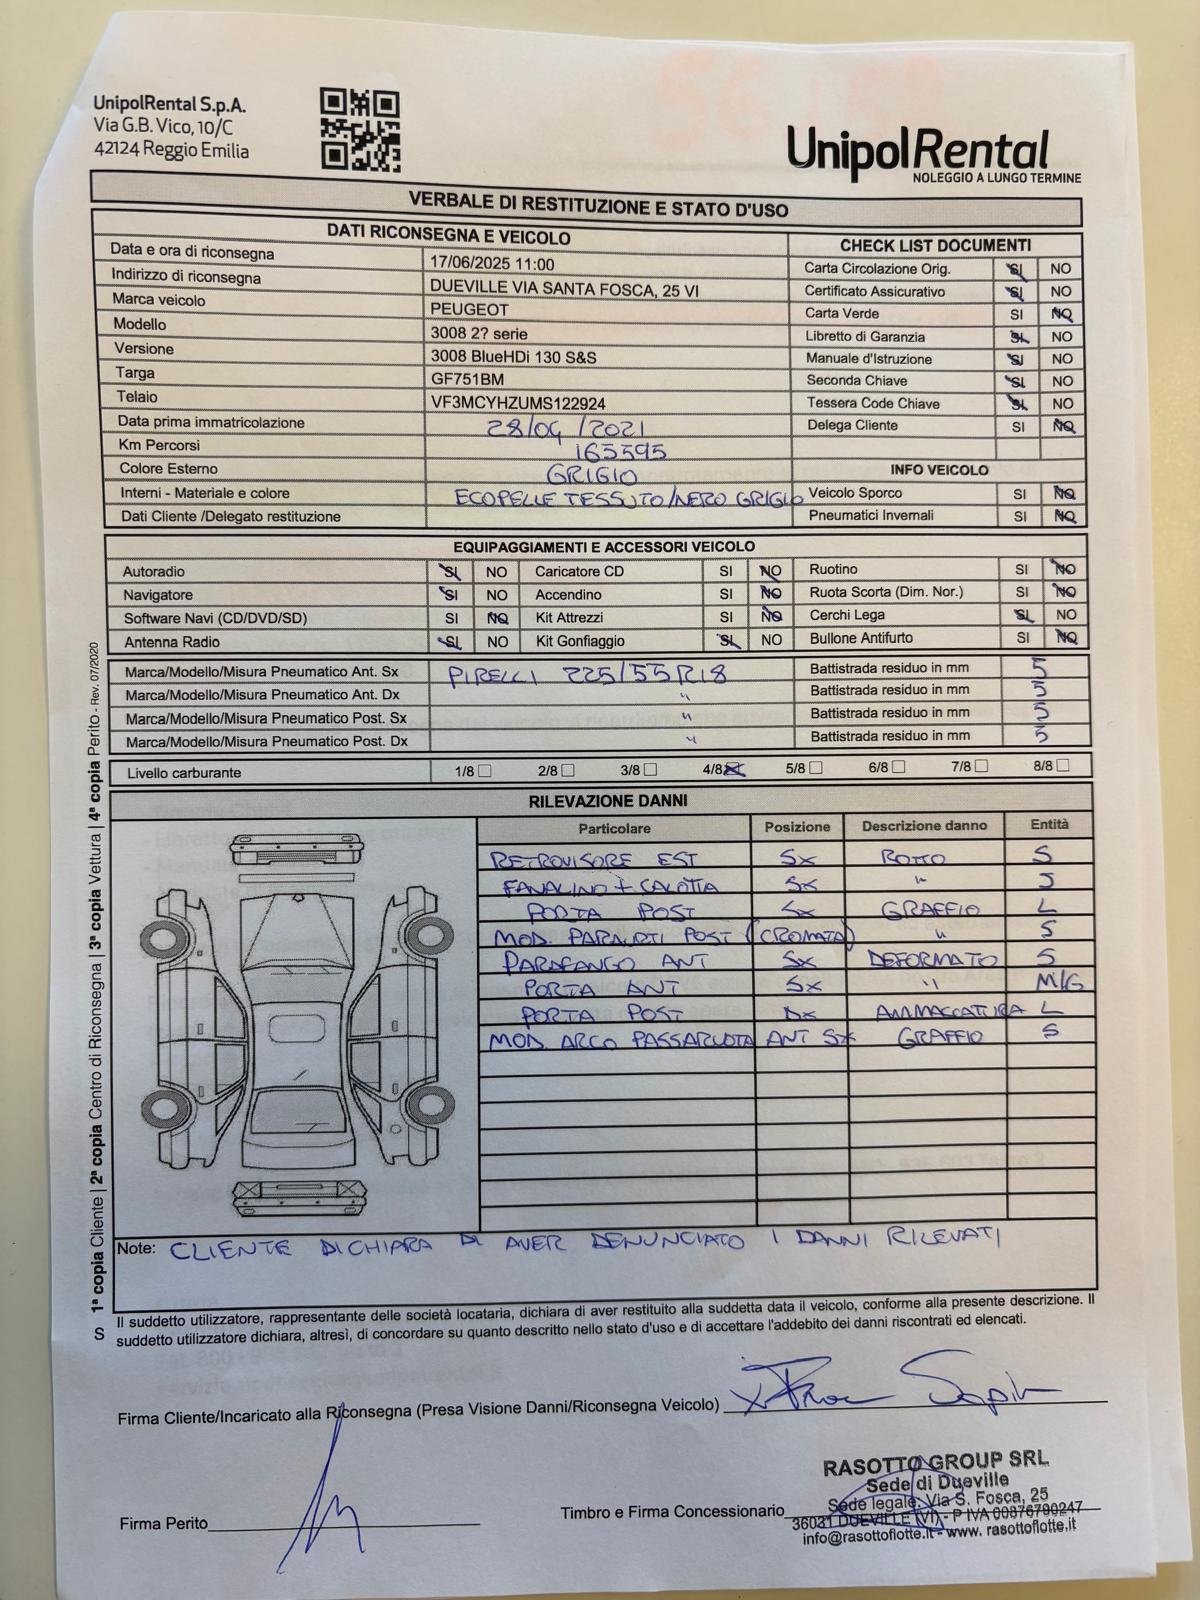 UnipolRental S.p.A.
Via G.B. Vico, 10/C
42124 Reggio Emilia
UnipolRental
NOLEGGIO A LUNGO TERMINE
VERBALE DI RESTITUZIONE E STATO D'USO
DATI RICONSEGNA E VEICOLO
Data e ora di riconsegna 17/06/2025 11:00
Indirizzo di riconsegna DUEVILLE VIA SANTA FOSCA, 25 VI
Marca veicolo PEUGEOT
Modello 3008 2? serie
Versione 3008 BlueHDi 130 S&S
Targa GF751BM
Telaio VF3MCYHZUMS122924
Data prima immatricolazione 28/04/2021
Km Percorsi 163595
Colore Esterno GRIGIO
Interni - Materiale e colore ECOPELLE TESSUTO/NERO GRIGIO
Dati Cliente /Delegato restituzione
CHECK LIST DOCUMENTI
Carta Circolazione Orig. SI NO
Certificato Assicurativo SI NO
Carta Verde SI NO
Libretto di Garanzia SI NO
Manuale d'Istruzione SI NO
Seconda Chiave SI NO
Tessera Code Chiave SI NO
Delega Cliente SI NO
INFO VEICOLO
Veicolo Sporco SI NO
Pneumatici Invernali SI NO
EQUIPAGGIAMENTI E ACCESSORI VEICOLO
Autoradio SI NO Caricatore CD SI NO Ruotino SI NO
Navigatore SI NO Accendino SI NO Ruota Scorta (Dim. Nor.) SI NO
Software Navi (CD/DVD/SD) SI NO Kit Attrezzi SI NO Cerchi Lega SI NO
Antenna Radio SI NO Kit Gonfiaggio SI NO Bullone Antifurto SI NO
Marca/Modello/Misura Pneumatico Ant. Sx PIRELLI 225/55R18 Battistrada residuo in mm 5
Marca/Modello/Misura Pneumatico Ant. Dx " Battistrada residuo in mm 5
Marca/Modello/Misura Pneumatico Post. Sx " Battistrada residuo in mm 5
Marca/Modello/Misura Pneumatico Post. Dx " Battistrada residuo in mm 5
Livello carburante 1/8 2/8 3/8 4/8 5/8 6/8 7/8 8/8
RILEVAZIONE DANNI
Particolare Posizione Descrizione danno Entità
RETROVISORE EST SX ROTTO S
FANALINO + CALOTTA SX " S
PORTA POST SX GRAFFIO L
MOD. PARAURTI POST (CROMATA) " S
PARAFANGO ANT SX DEFORMATO S
PORTA ANT SX " M/G
PORTA POST DX AMMACCATURA L
MOD. ARCO PASSARUOTA ANT SX GRAFFIO S
Note: CLIENTE DICHIARA DI AVER DENUNCIATO I DANNI RILEVATI
Il suddetto utilizzatore, rappresentante delle società locataria, dichiara di aver restituito alla suddetta data il veicolo, conforme alla presente descrizione. Il
suddetto utilizzatore dichiara, altresì, di concordare su quanto descritto nello stato d'uso e di accettare l'addebito dei danni riscontrati ed elencati.
Firma Cliente/Incaricato alla Riconsegna (Presa Visione Danni/Riconsegna Veicolo)
Firma Perito
Timbro e Firma Concessionario
RASOTTO GROUP SRL
Sede di Dueville
Sede legale: Via S. Fosca, 25
36031 DUEVILLE (VI) - P IVA 00876790247
info@rasottoflotte.it - www. rasottoflotte.it
1ª copia Cliente | 2ª copia Centro di Riconsegna | 3ª copia Vettura | 4ª copia Perito - Rev. 07/2020
S